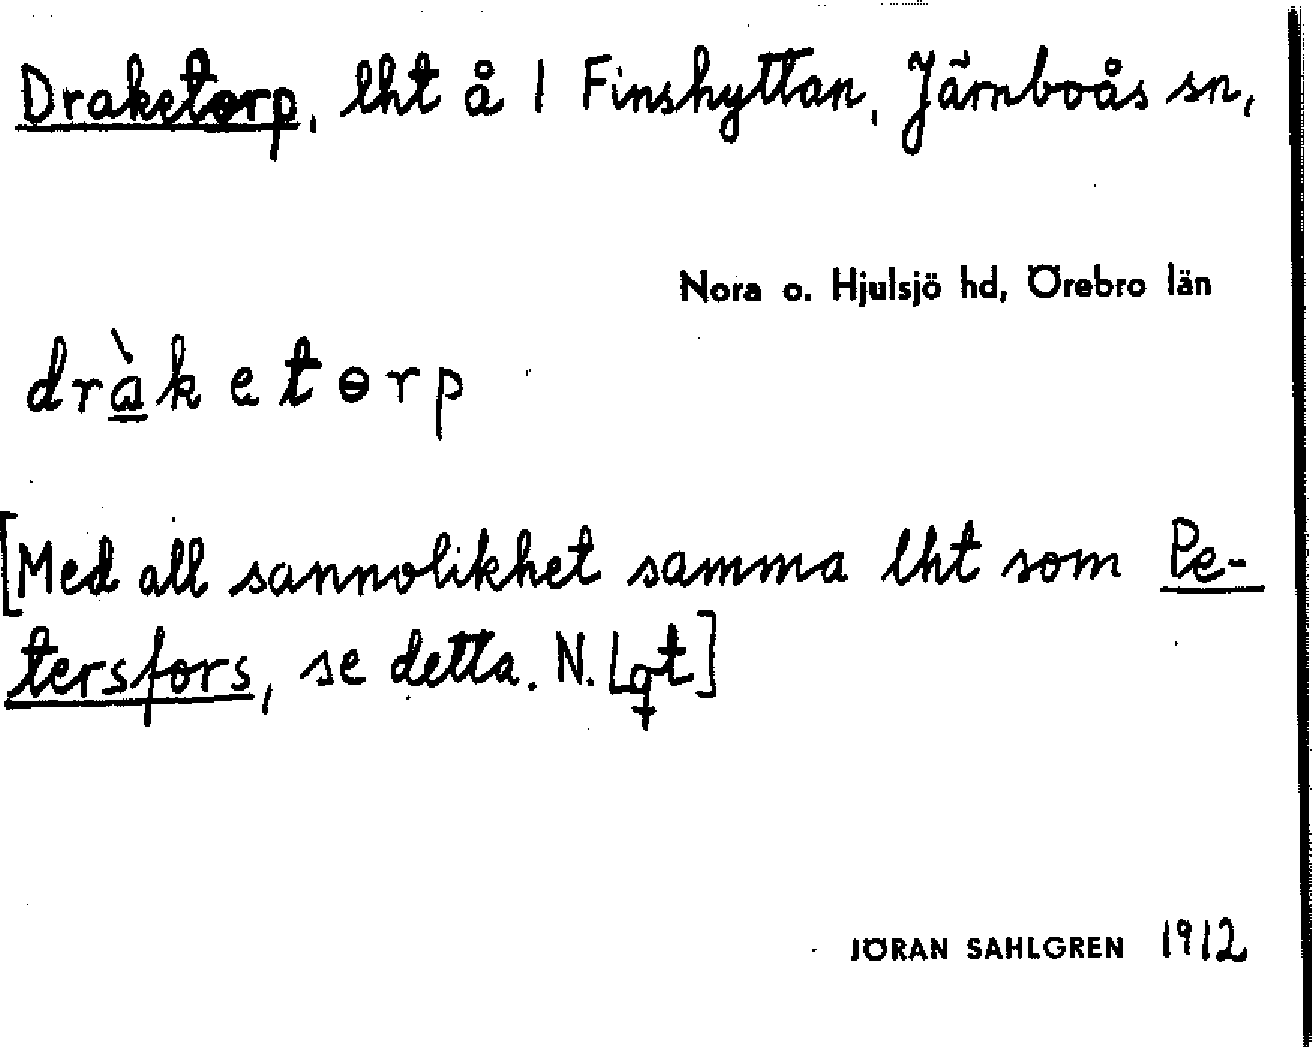 Draketorp, lht å 1 Finshyttan, Järnboås sn,
Nora o. Hjulsjö hd, Örebro län
dràketɵrp
[Med all sannolikhet samma lht som Pe-
tersfors, se detta. N. Lgt]
JÖRAN SAHLGREN 1912